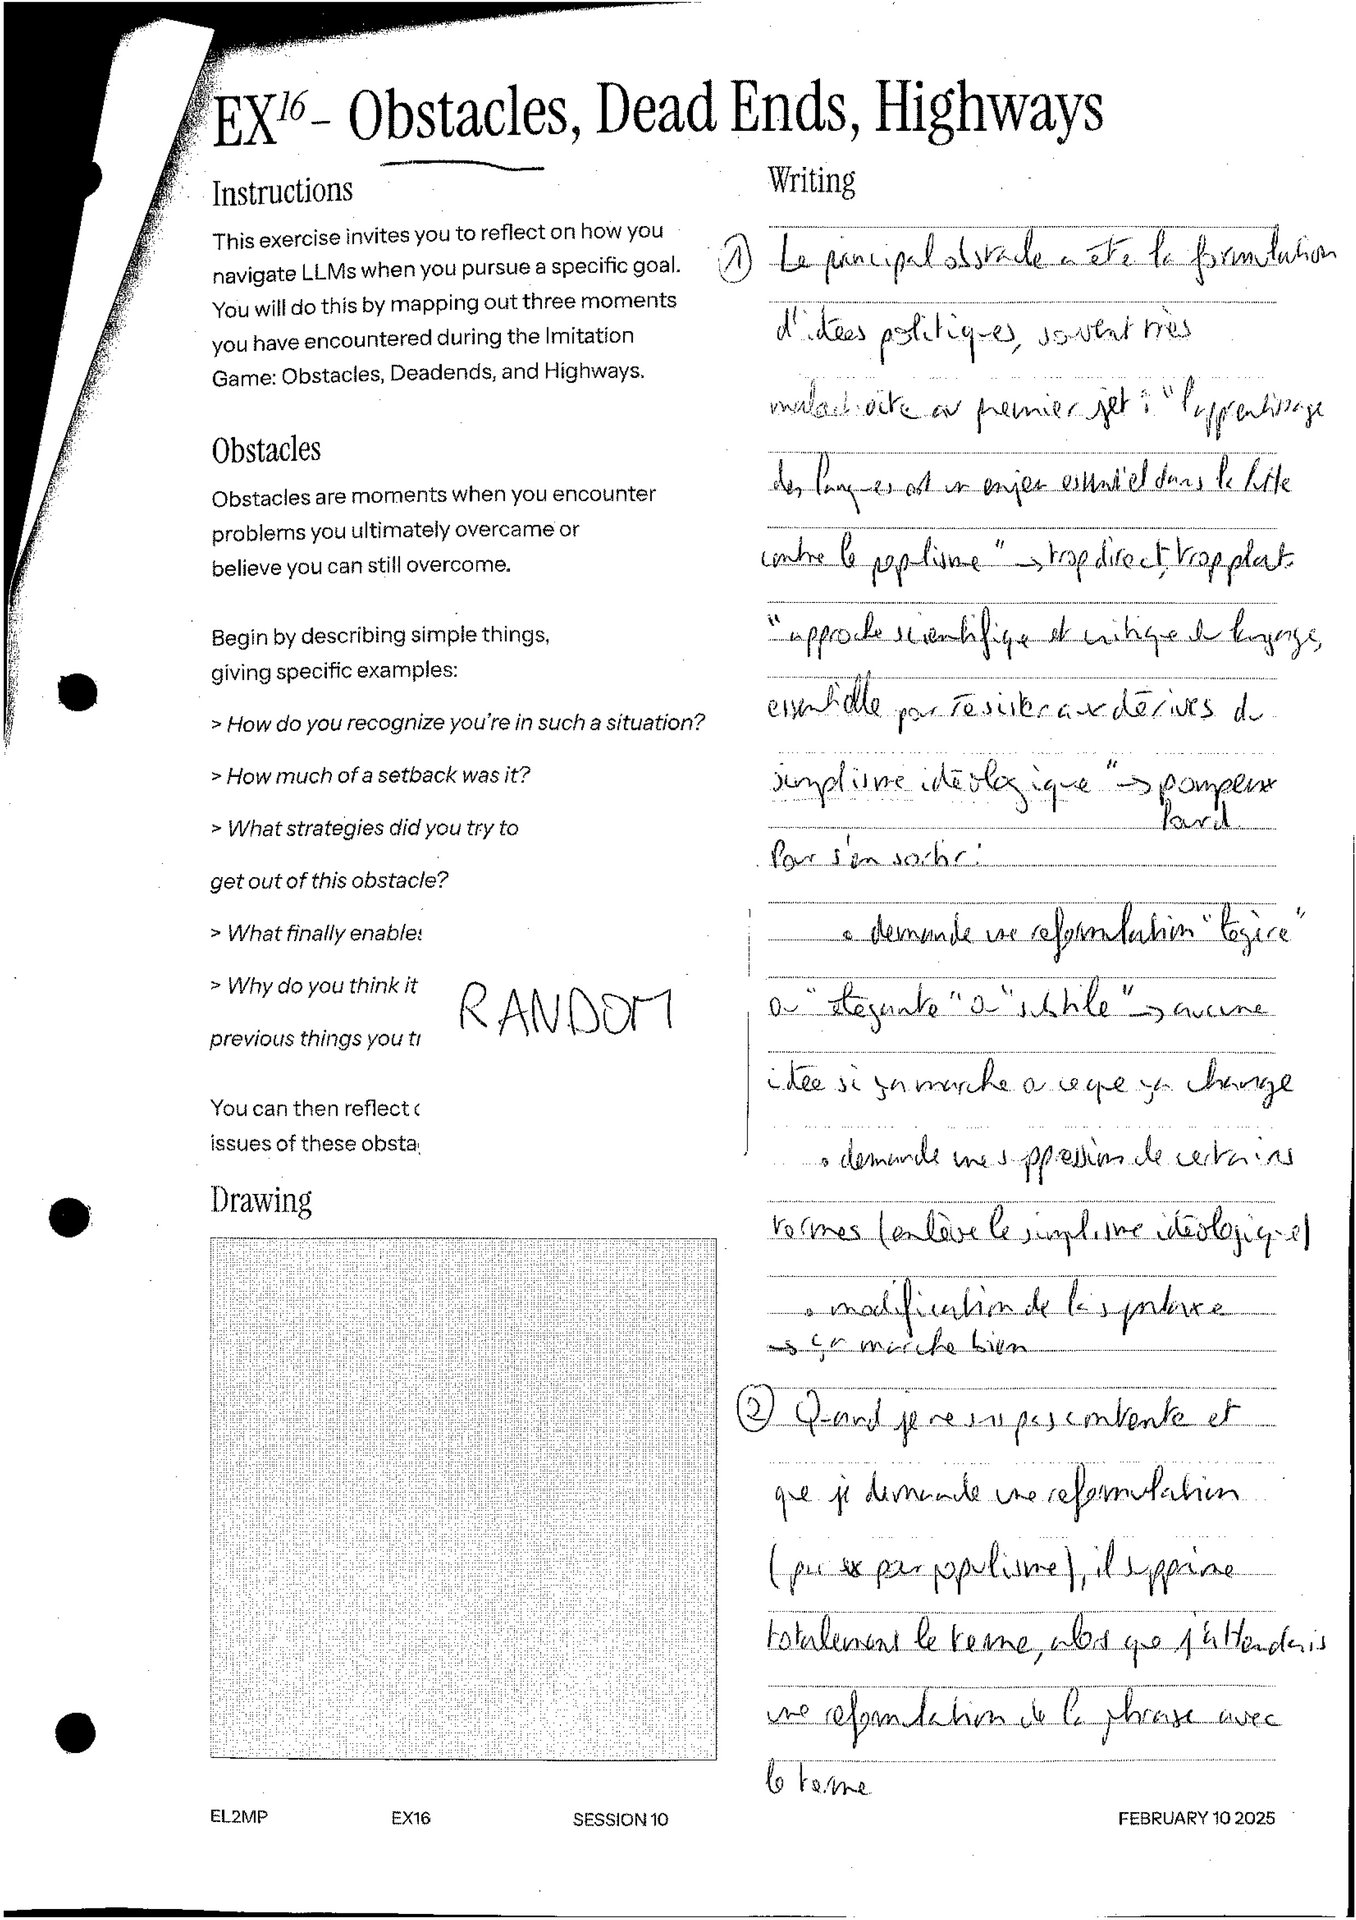 EX16 – Obstacles, Dead Ends, Highways
Instructions
This exercise invites you to reflect on how you
navigate LLMs when you pursue a specific goal.
You will do this by mapping out three moments
you have encountered during the Imitation
Game: Obstacles, Deadends, and Highways.
Obstacles
Obstacles are moments when you encounter
problems you ultimately overcame or
believe you can still overcome.
Begin by describing simple things,
giving specific examples:
> How do you recognize you're in such a situation?
> How much of a setback was it?
> What strategies did you try to
get out of this obstacle?
> What finally enable
> Why do you think it
previous things you t
You can then reflect
issues of these obsta
RANDOM
Drawing
Writing
① Le principal obstacle a été la formulation
d'idées politiques, souvent très
maladroite au premier jet : "l'apprentissage
des langues est un enjeu essentiel dans la lutte
contre le populisme" → trop direct, trop plat.
"approche scientifique et critique du langage,
essentielle pour résister aux dérives du
simplisme idéologique" → pompeux
lourd.
Pour s'en sortir :
• demande une reformulation "légère"
ou "élégante" ou "subtile" → aucune
idée si ça marche ou ce que ça change
• demande une suppression de certains
termes (enlève le simplisme idéologique)
• modification de la syntaxe
→ ça marche bien
② Quand je ne suis pas contente et
que je demande une reformulation
(par ex pour populisme), il supprime
totalement le terme, alors que j'attendais
une reformulation de la phrase avec
le terme
EL2MP EX16 SESSION 10 FEBRUARY 10 2025